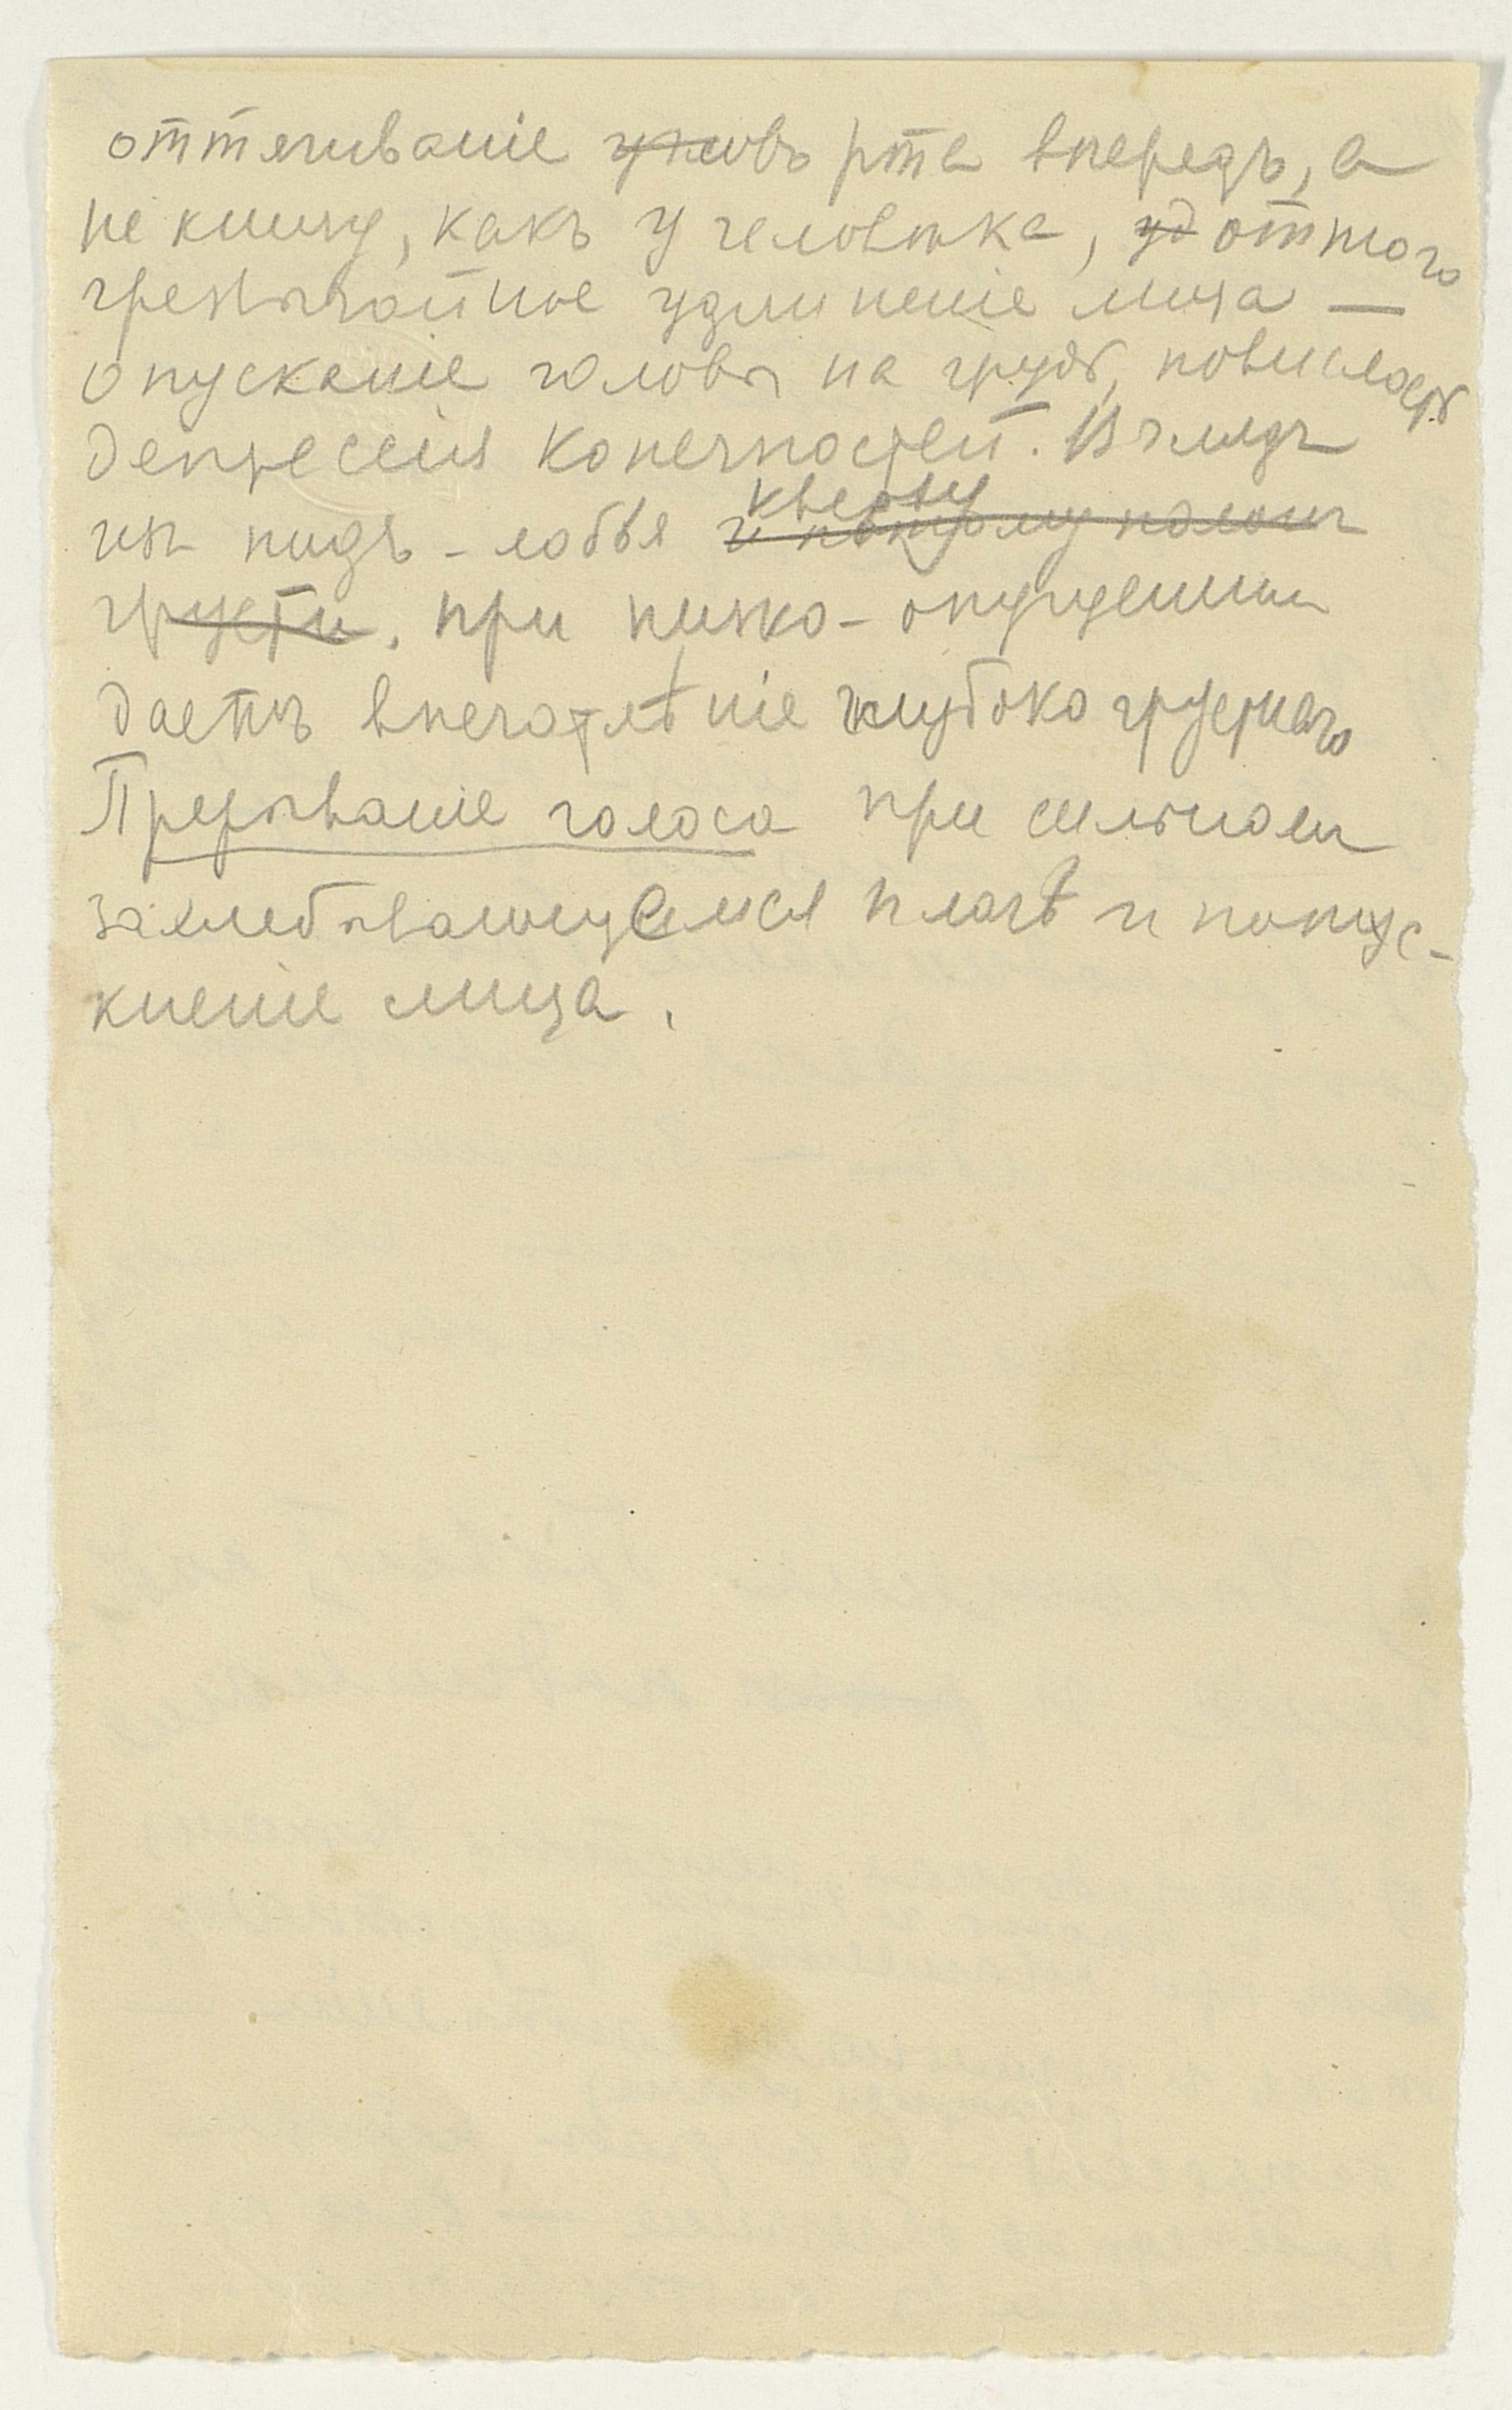 оттягиваніе угловъ рта впередъ, а
не книзу, какъ у человѣка, уд оттого
чрезвычайное удлиненіе лица —
опусканіе головы на грудь, повислость
депрессія конечностей. Взглядъ
кверху
изъ подъ-лобья и потому полонъ
грусти. при низко-опущенной
даетъ впечатлѣніе глубоко грустнаго
Прерываніе голоса при сильномъ
захлебывающемся плачѣ и потус-
кненіе лица.